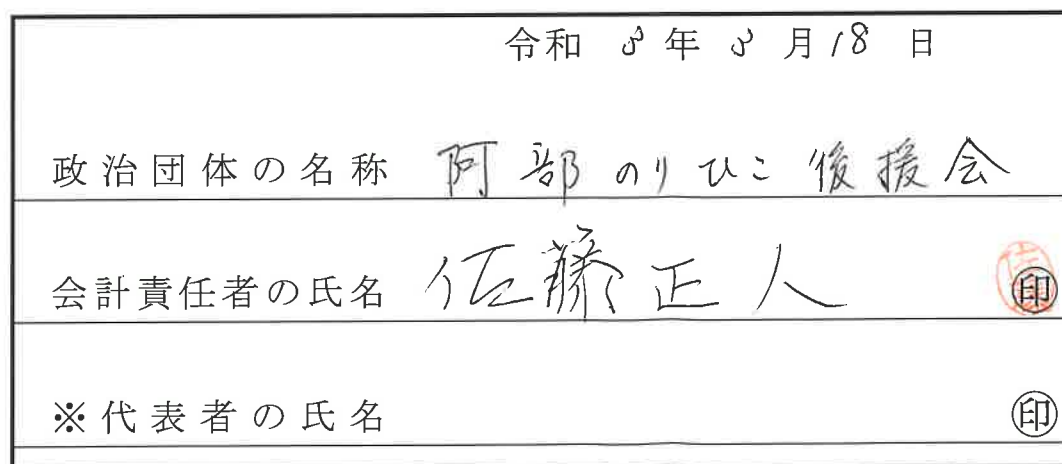 令和 3 年 3 月 18 日
政治団体の名称 阿部のりひこ後援会
会計責任者の氏名 佐藤正人 印
※代表者の氏名 印